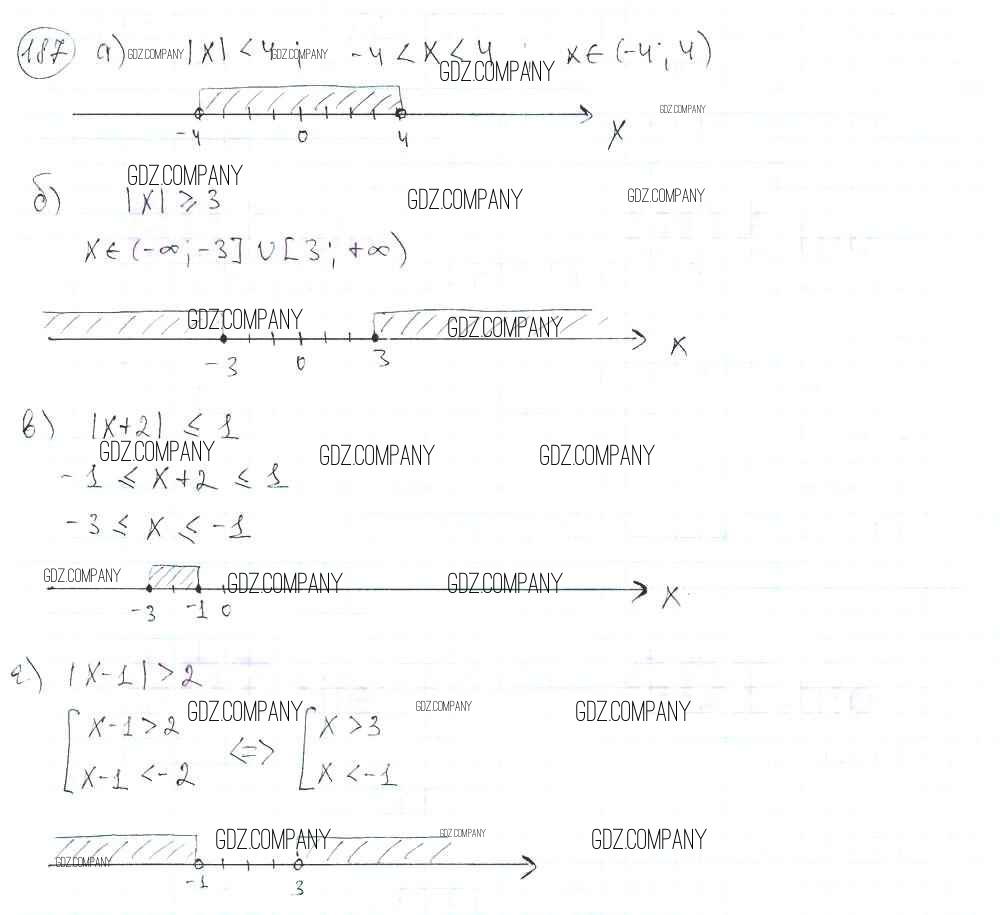 187 а) GDZ.COMPANY |x| < 4; GDZ.COMPANY -4 < x < 4; x ∈ (-4; 4)
GDZ.COMPANY
GDZ.COMPANY
-4 0 4 x
GDZ.COMPANY
б) |x| ⩾ 3 GDZ.COMPANY GDZ.COMPANY
x ∈ (-∞; -3] ∪ [3; +∞)
GDZ.COMPANY GDZ.COMPANY
-3 0 3 x
в) |x+2| ≤ 1
GDZ.COMPANY GDZ.COMPANY GDZ.COMPANY
-1 ≤ x+2 ≤ 1
-3 ≤ x ≤ -1
GDZ.COMPANY GDZ.COMPANY GDZ.COMPANY
-3 -1 0 x
г) |x-1| > 2
GDZ.COMPANY GDZ.COMPANY GDZ.COMPANY
[ x-1 > 2 <=> [ x > 3
x-1 < -2 x < -1
GDZ.COMPANY GDZ.COMPANY GDZ.COMPANY
GDZ.COMPANY
-1 3